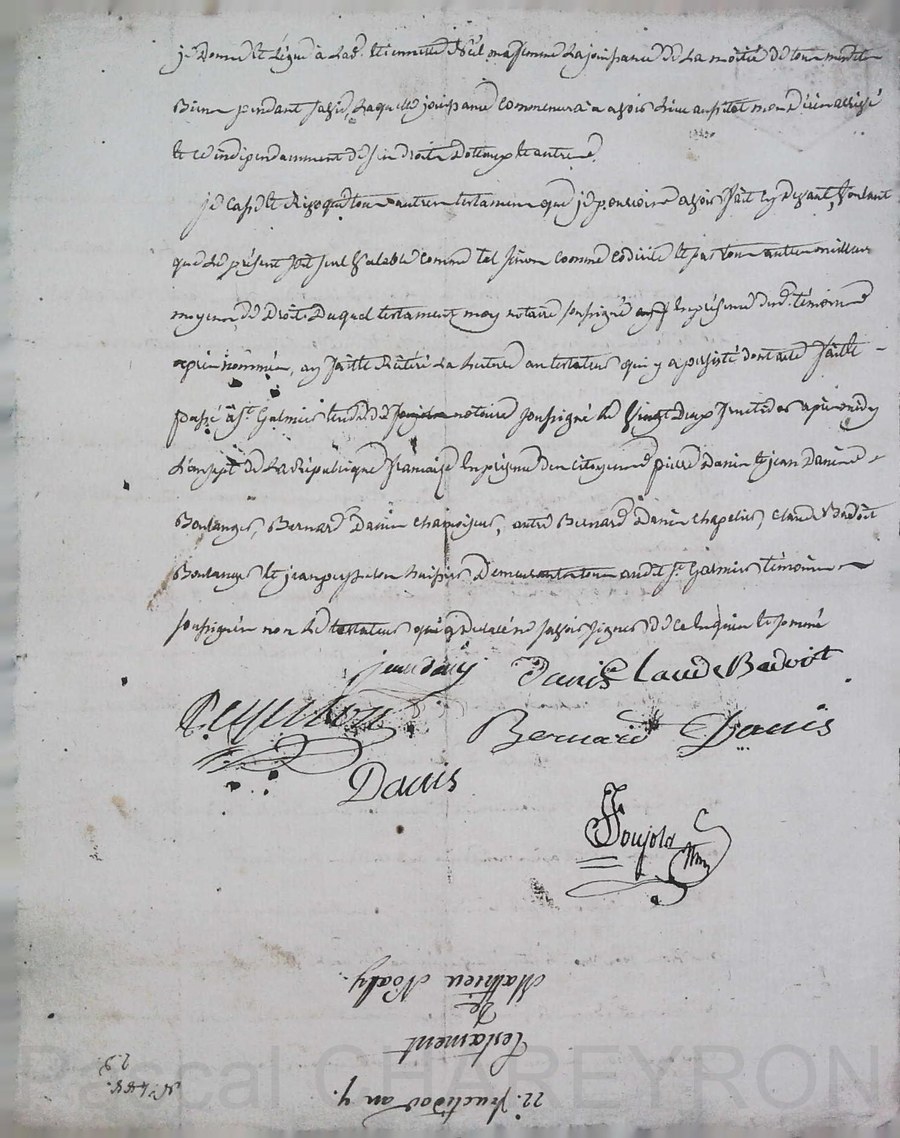 je Donne et Légue à Lad. etiennette Noël ma femme La jouissance De La moitié De tous mesdits
Biens pendant sa vie, Laquelle jouissance Commencera a avoir Lieu aussitot mon décès arrivé
et ce indépendamment De ses droits Dotaux et autres.
je Casse et Revoque tous autres testamens que je pourrois avoir fait Cy Devant, Voulant
que Le présent soit seul Valable Comme tel sinon Comme Codicile et par tous autres meilleurs
moyens, De Droit. Duquel testament moy notaire soussigné en présence desd. témoins
après nommés, ay fait et Réitéré La Lecture au testateur qui y a persisté dont acte fait et
passé à St. Galmier étude de notaire soussigné Le Vingt Deux fructidor après midy
L'an sept De La République française En présence des Citoyens pierre Danis et jean Danis
Boulanger, Bernard Danis Chamoiseur, autre Bernard Danis Chapelier, Claude Badoit
Boulanger et jean peyssellon huissier Demeurants tous audit St. Galmier témoins
soussignés non Le testateur qui a declaré ne savoir signer De ce Enquis et sommé
jean danis Danis Claude Badoit
Bernard Danis
Danis
Soujola
22. fructidor an 7.
Testament
De
Mathieu Noally.